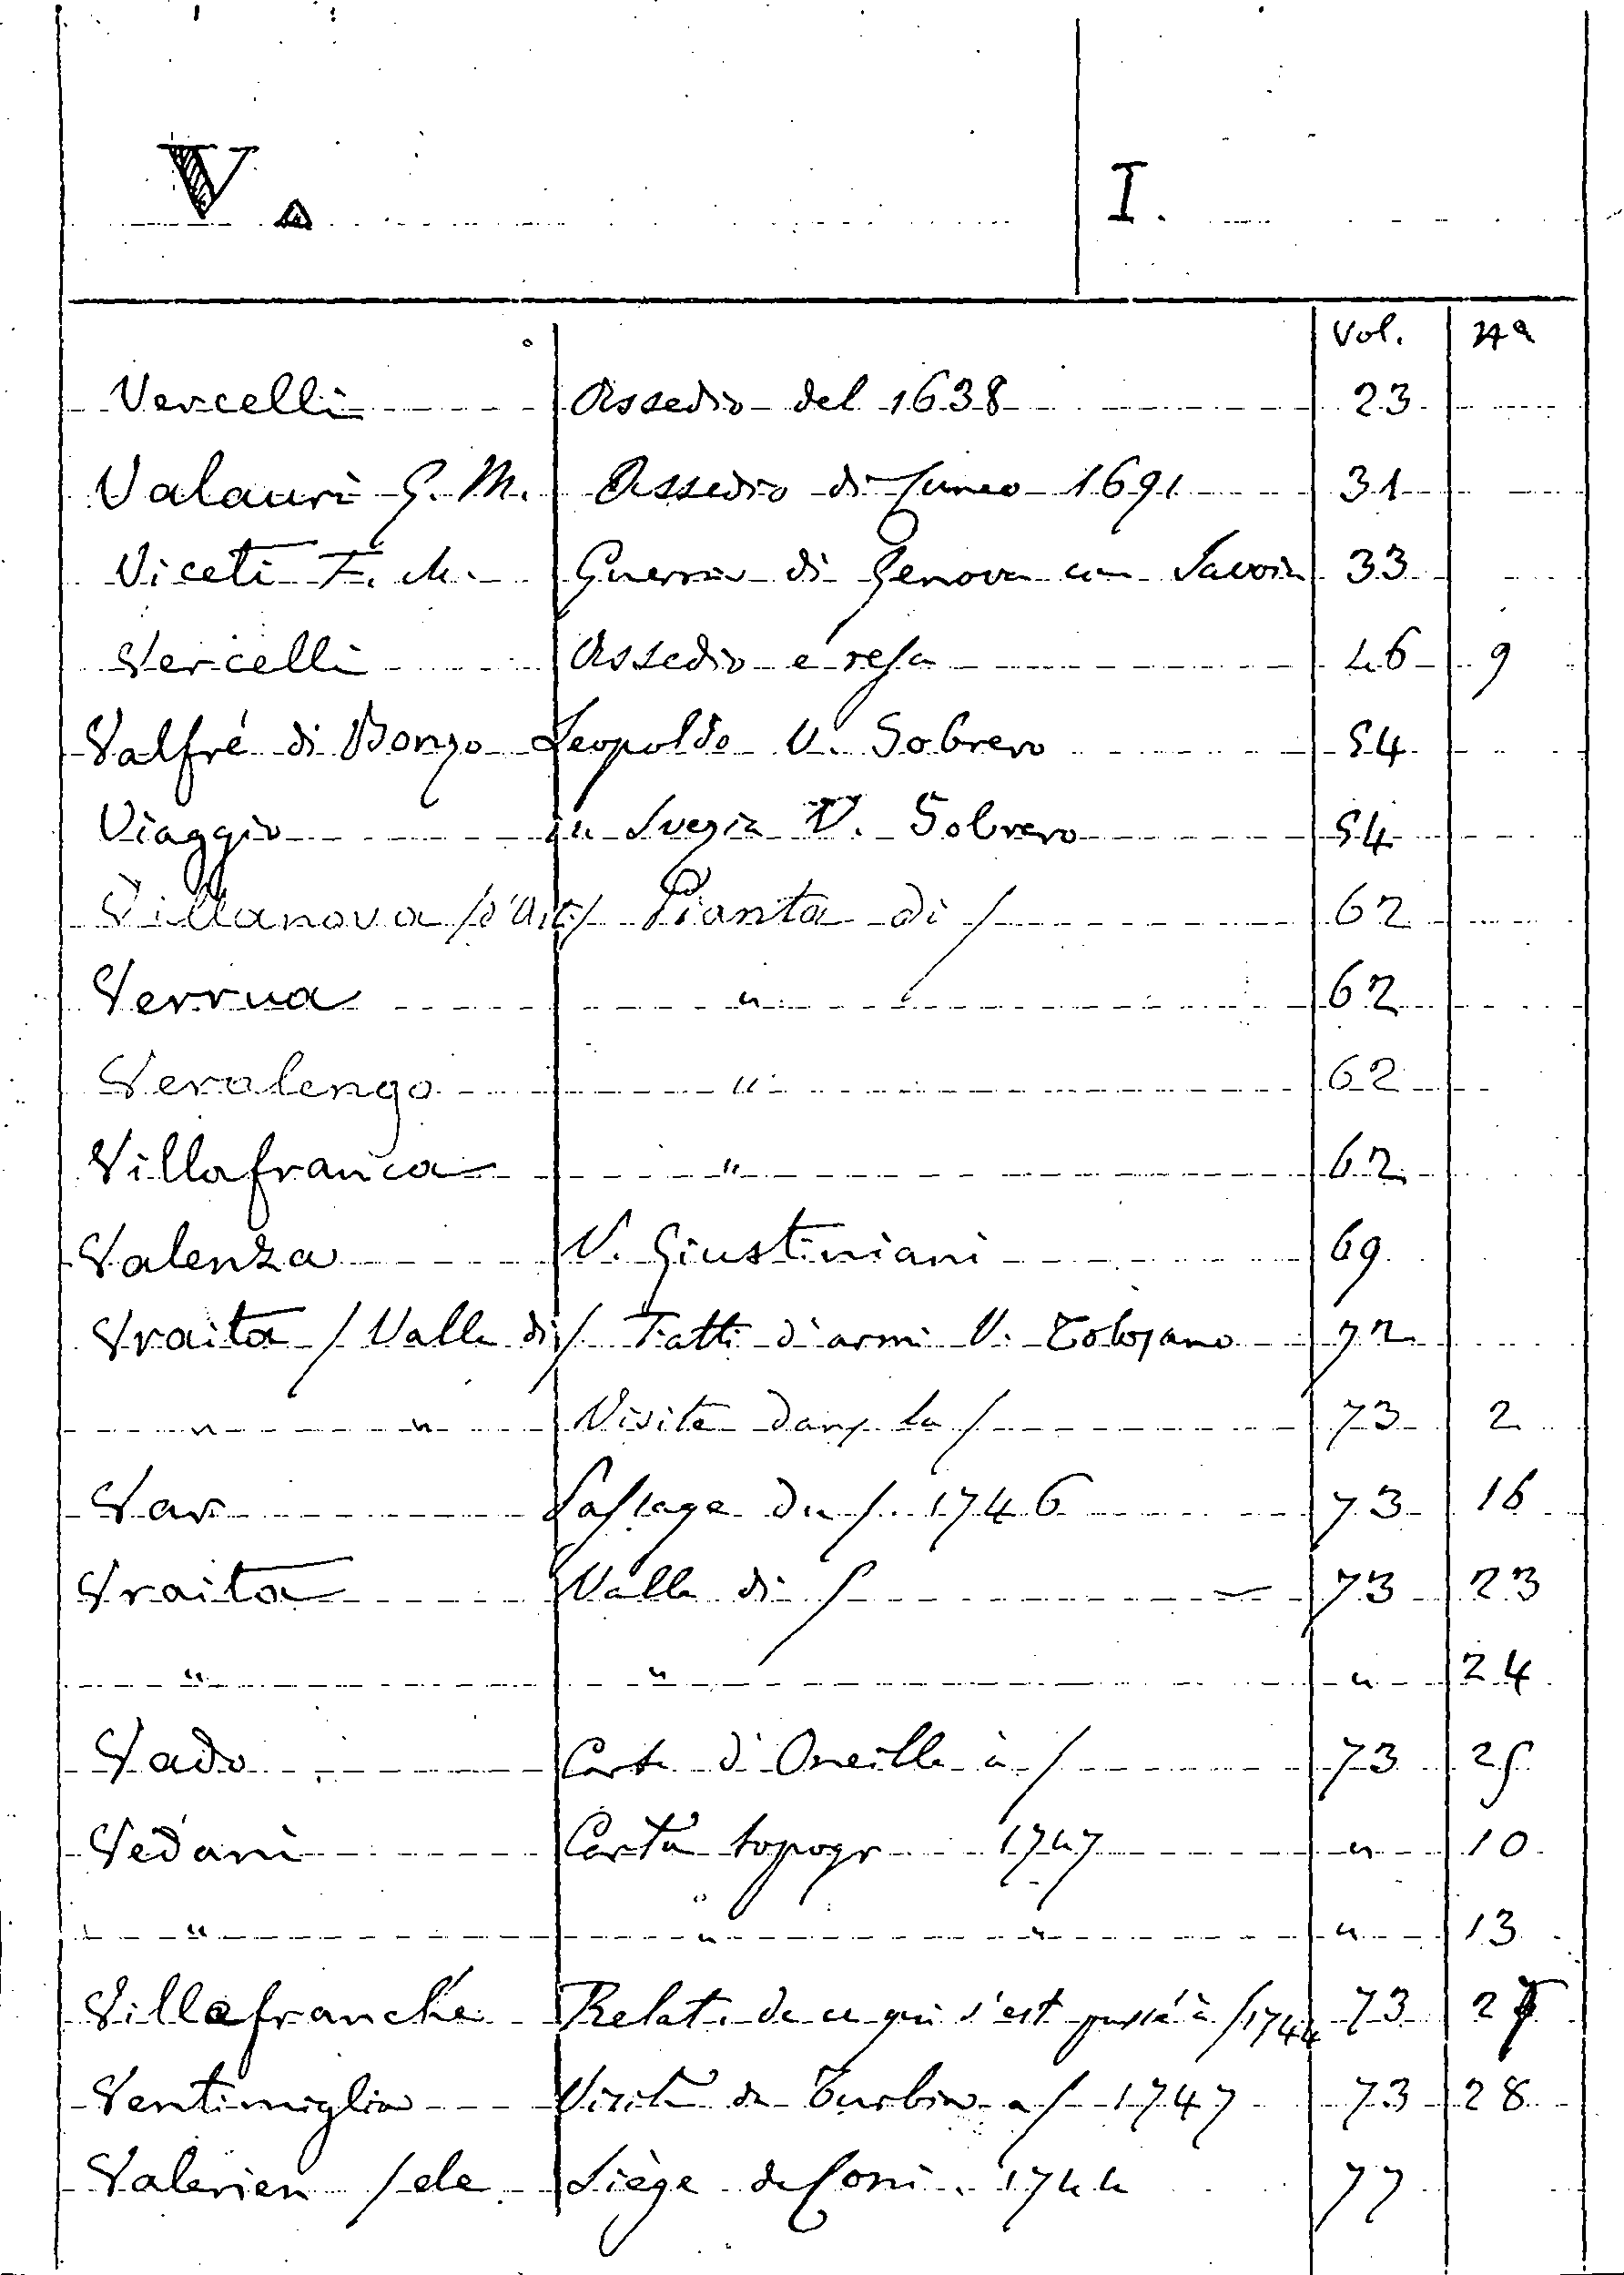 V. I.
Vol. Nº
Vercelli Assedio del 1638 23
Valauri G. M. Assedio di Cuneo 1691 31
Viceti F. M. Guerra di Genova con Savoia 33
Vercelli Assedio e resa 46 9
Valfré di Bonzo Leopoldo V. Sobrero 54
Viaggio in Svezia V. Sobrero 54
Villanova /d'Asti/ Pianta di / 62
Verrua " 62
Verolengo " 62
Villafranca " 62
Valenza V. Giustiniani 69
Vraita / Valle di / Fatti d'armi V. Tolosano 72
" " Visite dans la / 73 2
Var Passage du / 1746 73 16
Vraita Valle di / 73 23
" " " 24
Vado Carte d'Oneille à / 73 25
Vedani Carta topogr 1747 " 10
" " " " 13
Villefranche Relat. de ce qui s'est passé à / 1744 73 27
Ventimiglia Visite de Turbia a / 1747 73 28
Valerien / de Siège de Coni. 1744 77